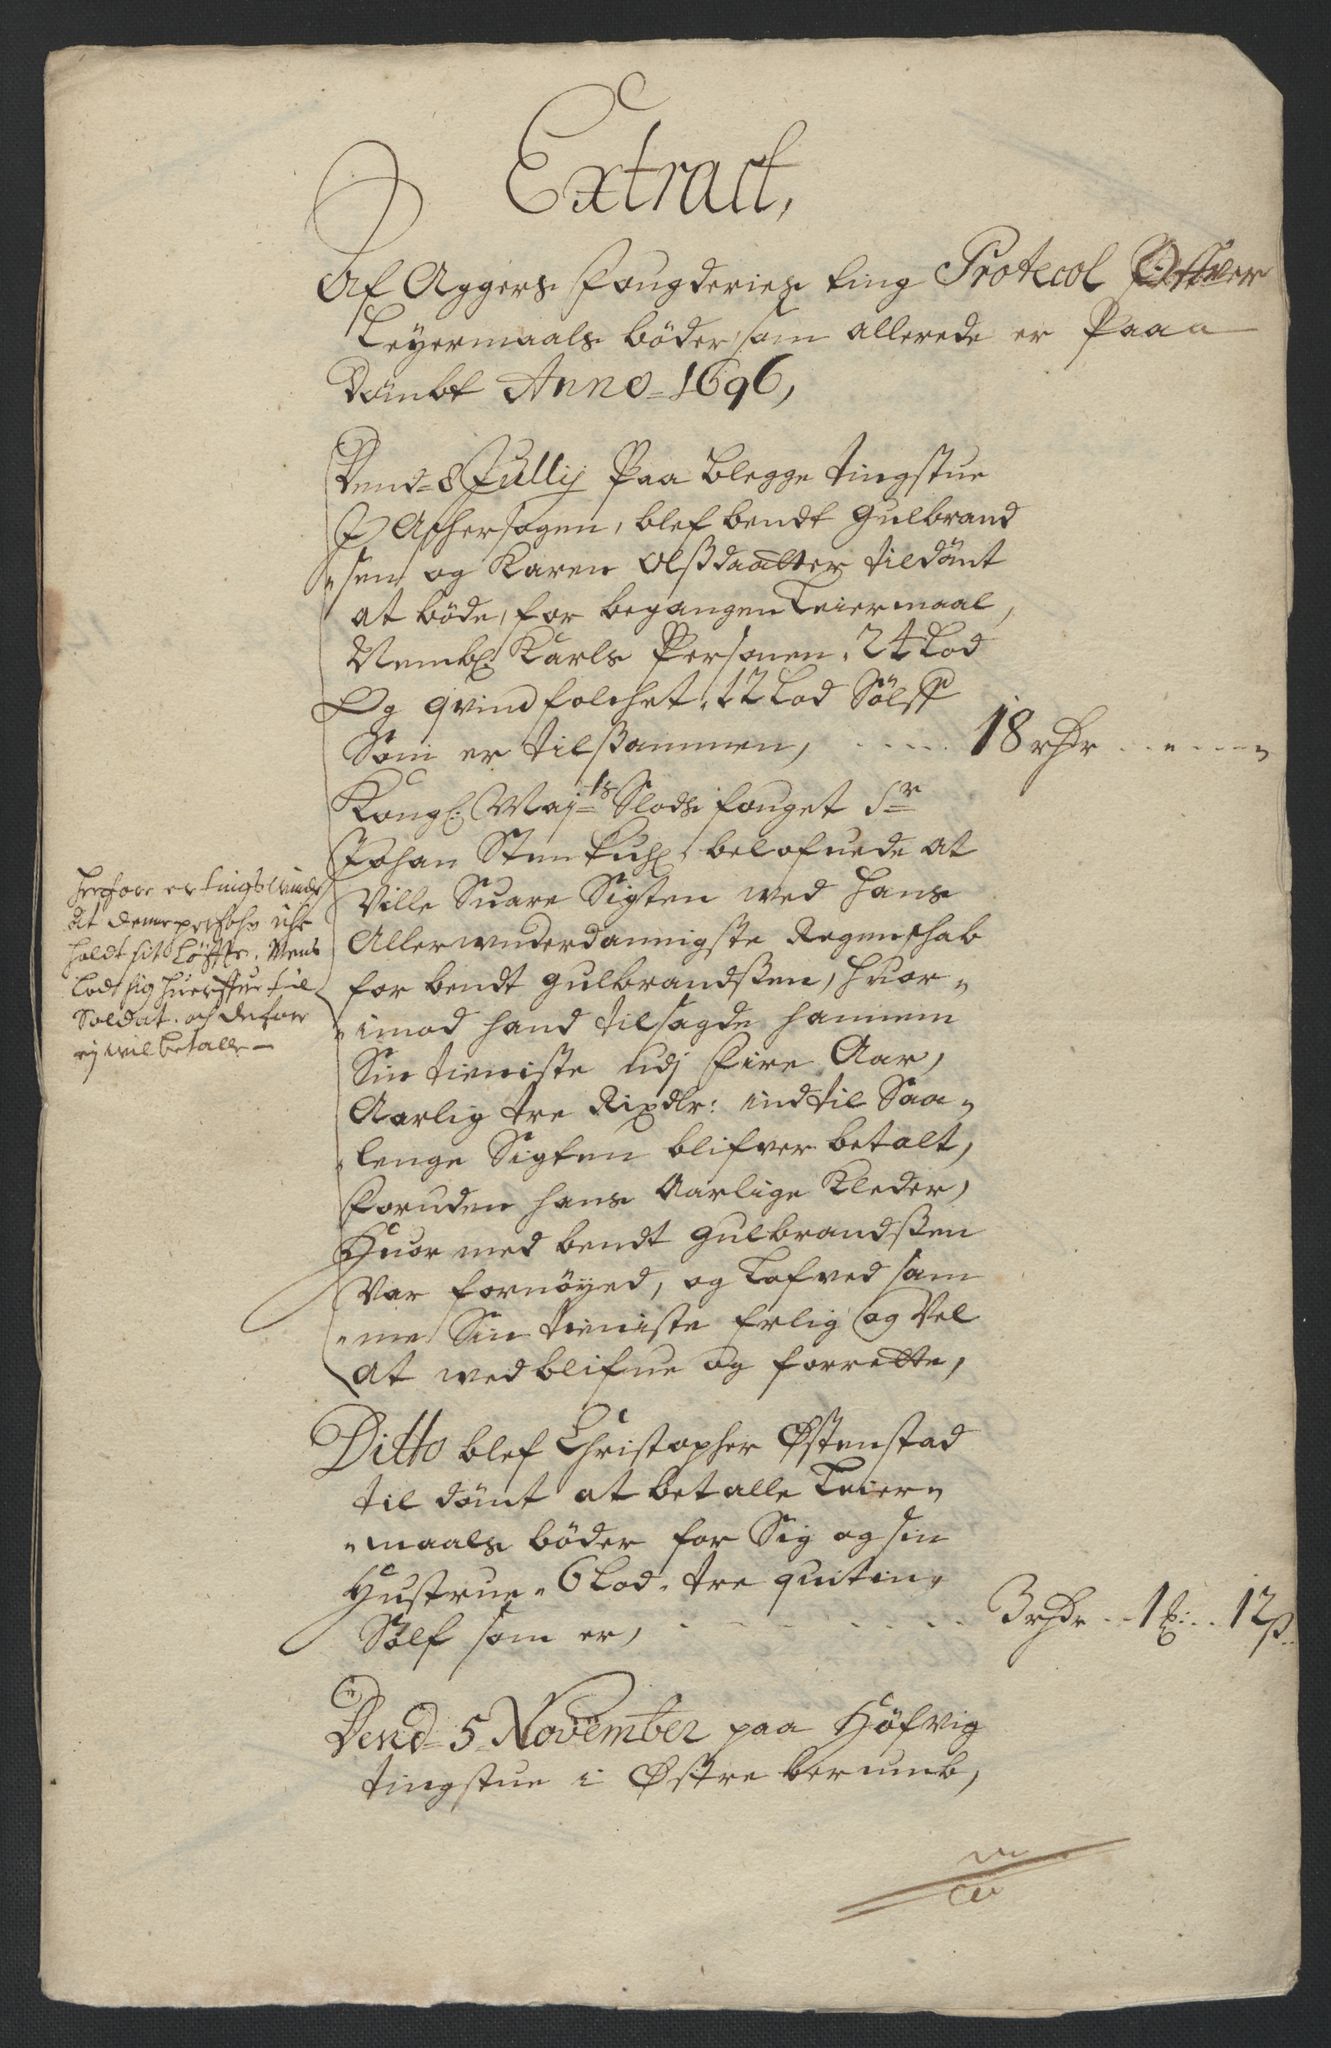 Extract,
Af Aggers Fougderies ting Protecol Ofver
Leyermaals böder som allerede er Paaa
Dömbt Anno 1696,
Dend 8 Jullij Paa Blegge tingstue
I Aschersogen, blef bendt Gulbrand
"sen og Karen Olßdaatter tildömt
at böde, for begangen Leiermaal,
Nembl: Karls Personen, 24 Lod
Og qvindfolchet, 12 Lod Sölf
Som er tilßammen, 18 rdr
Kongl: Maj:ts Slods fouget Sr
Johan Stenkuhl belofuede at
Ville Suare Sigten med hans
Allerunderdannigste Regenschab
for bendt Gulbrandßen, Huor-
"imod hand tilsagde hannem
Sin tieniste udj Fire Aar,
Aarlig tre Rixdlr: indtil Saa-
"lenge Sigten blifver betalt,
Foruden hans Aarlige Kleder,
Huor med bendt Gulbrandßen
Var fornöyed, og Lofved sam
"me Sin tieniste Erlig og Vel
at vedblifue og forrette,
Herfore er tingsvinde
at denne persohn iche
holdt sit Löffte. Mens
Lod sig hverffue til
Soldat. och derfore
ej vil betalle
Ditto blef Christopher Østenstad
til dömt at betalle Leier-
"maals böder for Sig og sin
Hustrue, 6 Lod, tre quitin,
Sölf som er, 3 rdr 1 ß: 12 ß
Dend 5 November paa Höfvig
tingstue i Østre berumb,